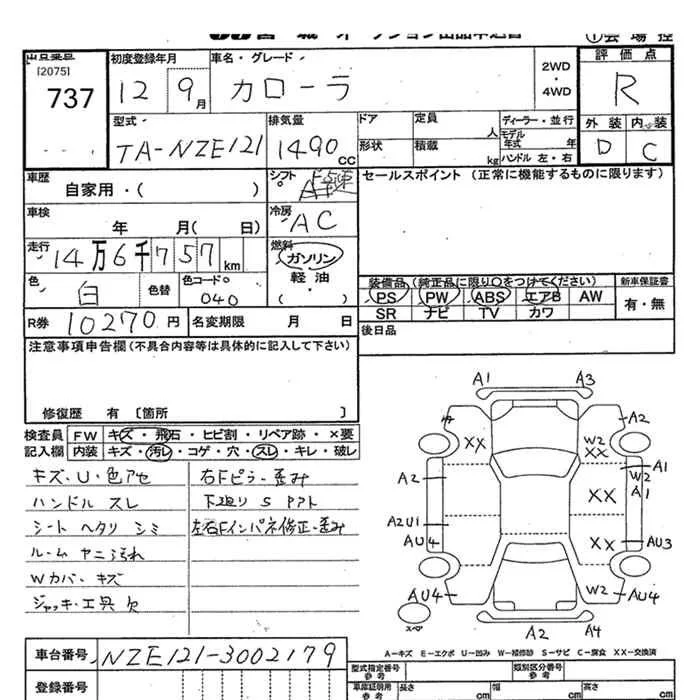 宮城オークション出品申込書
①会場控
出品番号
[2075]
737
初度登録年月
12 9月
車名・グレード
カローラ
2WD
・
4WD
評価点
R
外装 内装
D C
型式
TA-NZE121
排気量
1490 CC
ドア
形状
定員
人
積蔵
kg
ディーラー・並行
モデル年式 年
ハンドル 左・右
車歴
自家用・( )
シフト
冷房
AC
セールスポイント(正常に機能するものに限ります)
車検
年 月( 日)
走行
14万6千757km
燃料
ガソリン
軽油
・( )
色
白
色替
色コードNo
040
装備品(純正品に限り○をつけてください)
PS PW ABS エアB AW
SR ナビ TV カワ
新車保証書
有・無
R券 10270円
名変期限 月 日
後日品
注意事項申告欄(不具合内容等は具体的に記入して下さい)
修復歴 有〔箇所 〕
検査員記入欄
FW キズ・飛石・ヒビ割・リペア跡・×要
内装 キズ・汚レ・コゲ・穴・スレ・キレ・破レ
キズ・U・色アセ
ハンドル スレ
シート ヘタリ シミ
ルーム ヤニ汚れ
Wカバー・キズ
ジャッキ・工具 欠
右Fピラー歪み
下廻り S
左右Fインパネ修正・歪み
A1 A3
A2
XX
W2
XX
A1
W2
A1
A2
XX
A2U1
AU4
XX
AU3
W2
AU4
AU4
スペア
A2 A4
A-キズ E-エクボ U-凹み W-補修跡 S-サビ C-腐食 XX-交換済
車台番号
NZE121-3002179
登録番号
型式指定番号
参考
類別区分番号
参考
車庫証明用
参考
長さ cm
幅 cm
高さ cm